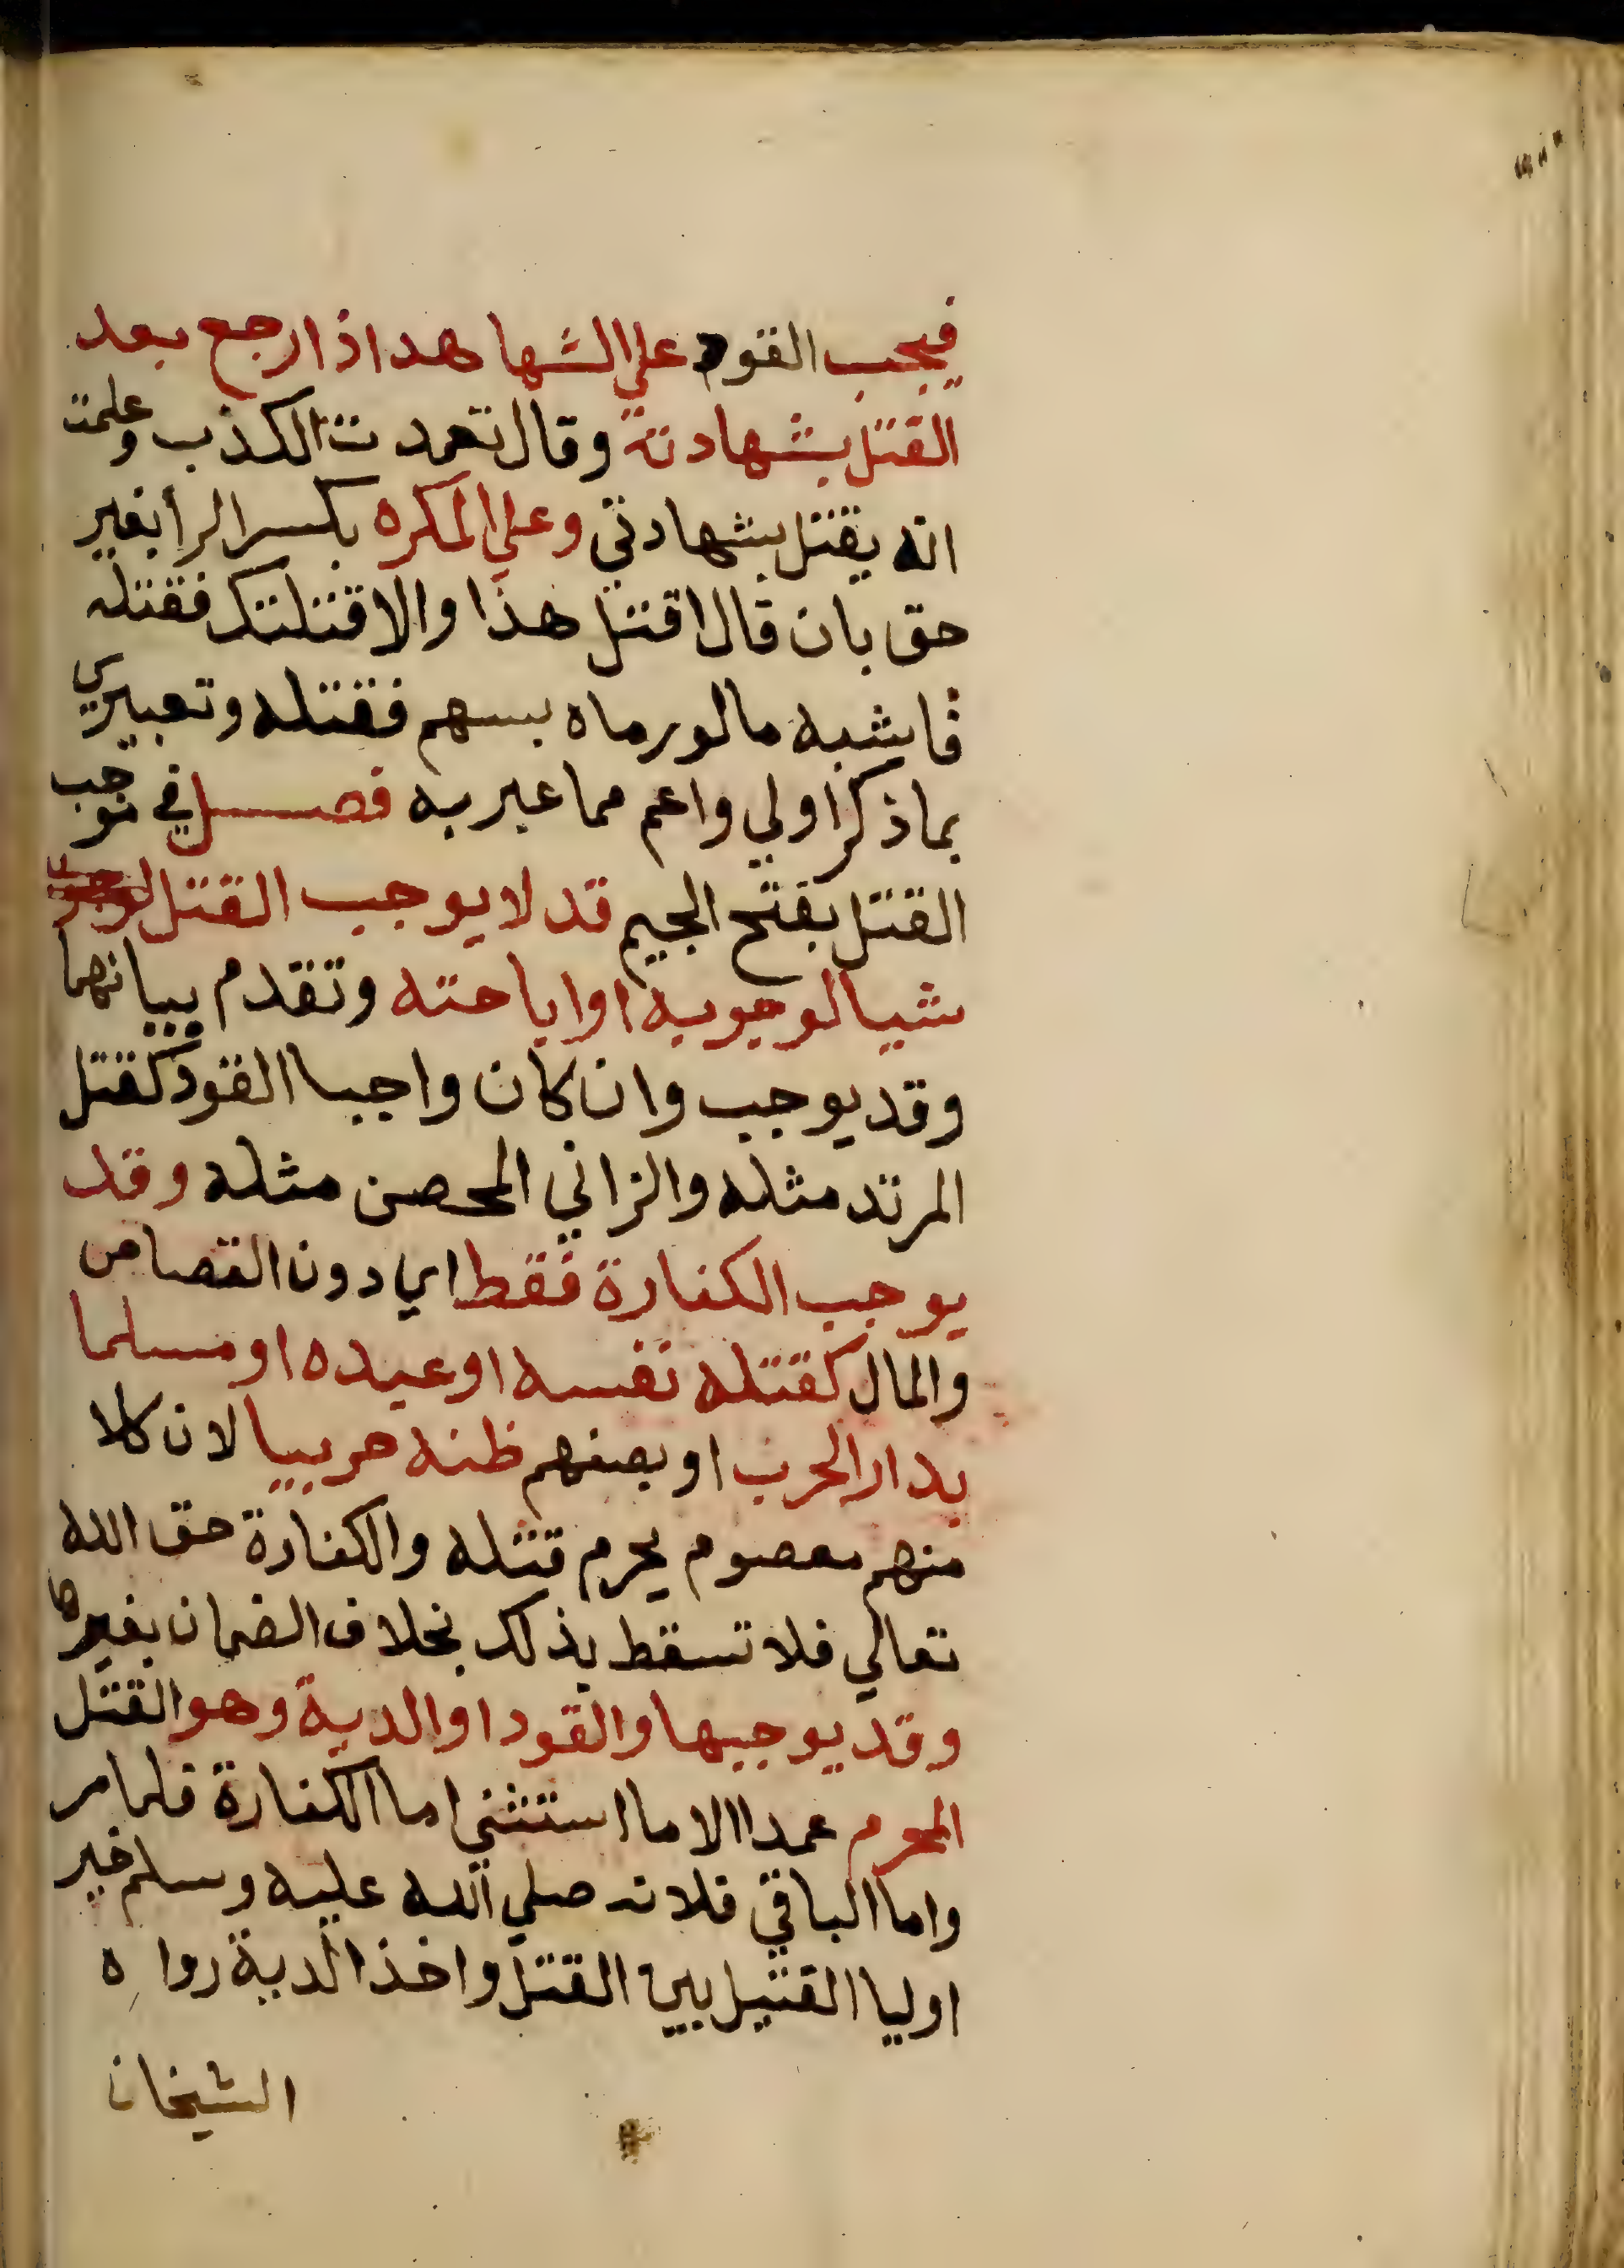 فيجب القود علي الشاهد اذا رجع بعد
القتل بشهادته وقال تعمدت الكذب وعلمت
انه يقتل بشهادتي وعلي المكره بكسر الرا بغير
حق بان قال اقتل هذا والا قتلتك فقتله
فاشبه ما لو رماه بسهم فقتله وتعبيري
بما ذكر اولي واعم مما عبر به فصل في موجب
القتل بفتح الجيم قد لا يوجب القتل
شيا لوجوبه او اباحته وتقدم بيانهما
وقد يوجب وان كان واجبا القود كقتل
المرتد مثله والزاني المحصن مثله وقد
يوجب الكفارة فقط اي دون القصاص
والمال كقتله نفسه او عبده او مسلما
بدار الحرب او بصفهم ظنه حربيا لان كلا
منهم معصوم يحرم قتله والكفارة حق الله
تعالي فلا تسقط بذلك بخلاف الضمان بغيرها
وقد يوجبها والقود او الدية وهو القتل
المحرم عمدا الا ما استثني اما الكفارة فلما مر
واما الباقي فلانه صلي الله عليه وسلم خير
اوليا القتيل بين القتل واخذ الدية رواه
الشيخان